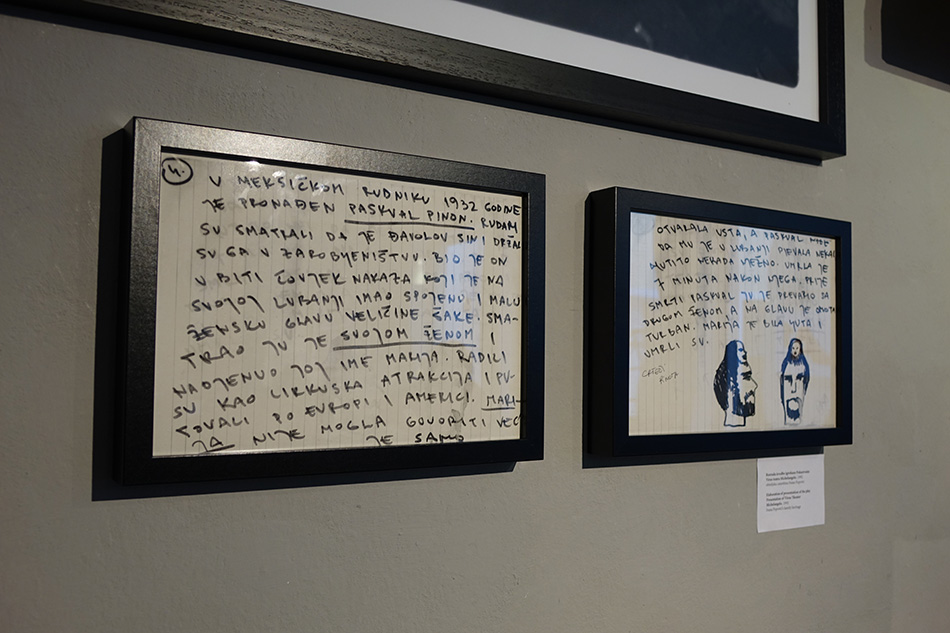 4.
U MEKSIČKOM RUDNIKU 1932 GODINE
JE PRONAĐEN PASKVAL PINON. RUDARI
SU SMATRALI DA JE ĐAVOLOV SIN I DRŽALI
SU GA U ZAROBJENIŠTVU. BIO JE ON
U BITI ČOVJEK NAKAZA KOJI JE NA
SVOJOJ LUBANJI IMAO SPOJENU I MALU
ŽENSKU GLAVU VELIČINE ŠAKE. SMA-
TRAO JU JE SVOJOM ŽENOM I
NADJENUO JOJ IME MARIJA. RADILI
SU KAO CIRKUSKA ATRAKCIJA I PU-
TOVALI PO EUROPI I AMERICI. MARI-
JA NIJE MOGLA GOVORITI VEĆ
JE SAMO
OTVARALA USTA, A PASKVAL
DA MU JE U LUBANJI PJEVALA NEKAD
LJUTITO NEKADA NJEŽNO. UMRLA JE
7 MINUTA NAKON NJEGA. PRIJE
SMRTI PASKVAL JU JE PREVARIO SA
DRUGOM ŽENOM A NA GLAVU JE OMOTA
TURBAN. MARIJA JE BILA LJUTA I
UMRLI SU.